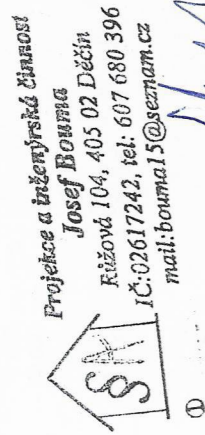 Projekce a inženýrská činnost
Josef Bouma
Růžová 104, 405 02 Děčín
IČ:02617242, tel: 607 680 396
mail:bouma15@seznam.cz
§
①